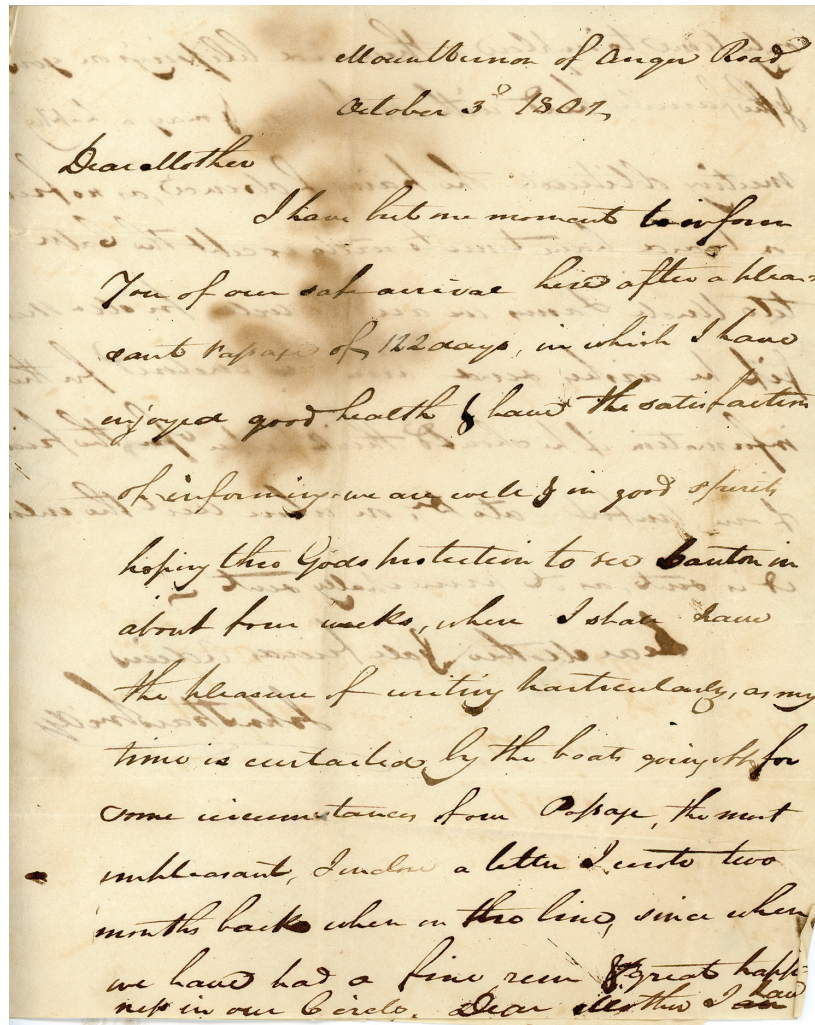 Mount Vernon of Anger Road
October 3d 1807,
Dear Mother
I have but one moment to inform
You of our safe arrival here after a plea-
sant Passage of 122 days, in which I have
enjoyed good health & have the satisfaction
of informing we are well & in good spirits
hoping thro Gods protection to see Canton in
about four weeks, when I shall have
the pleasure of writing particularly, as my
time is curtailed by the boats going off for
some circumstances of our Passage, the most
unpleasant, I inclose a letter I wrote two
months back when on the line, since when
we have had a fine run & great happi-
ness in our Circle. Dear Mother I have